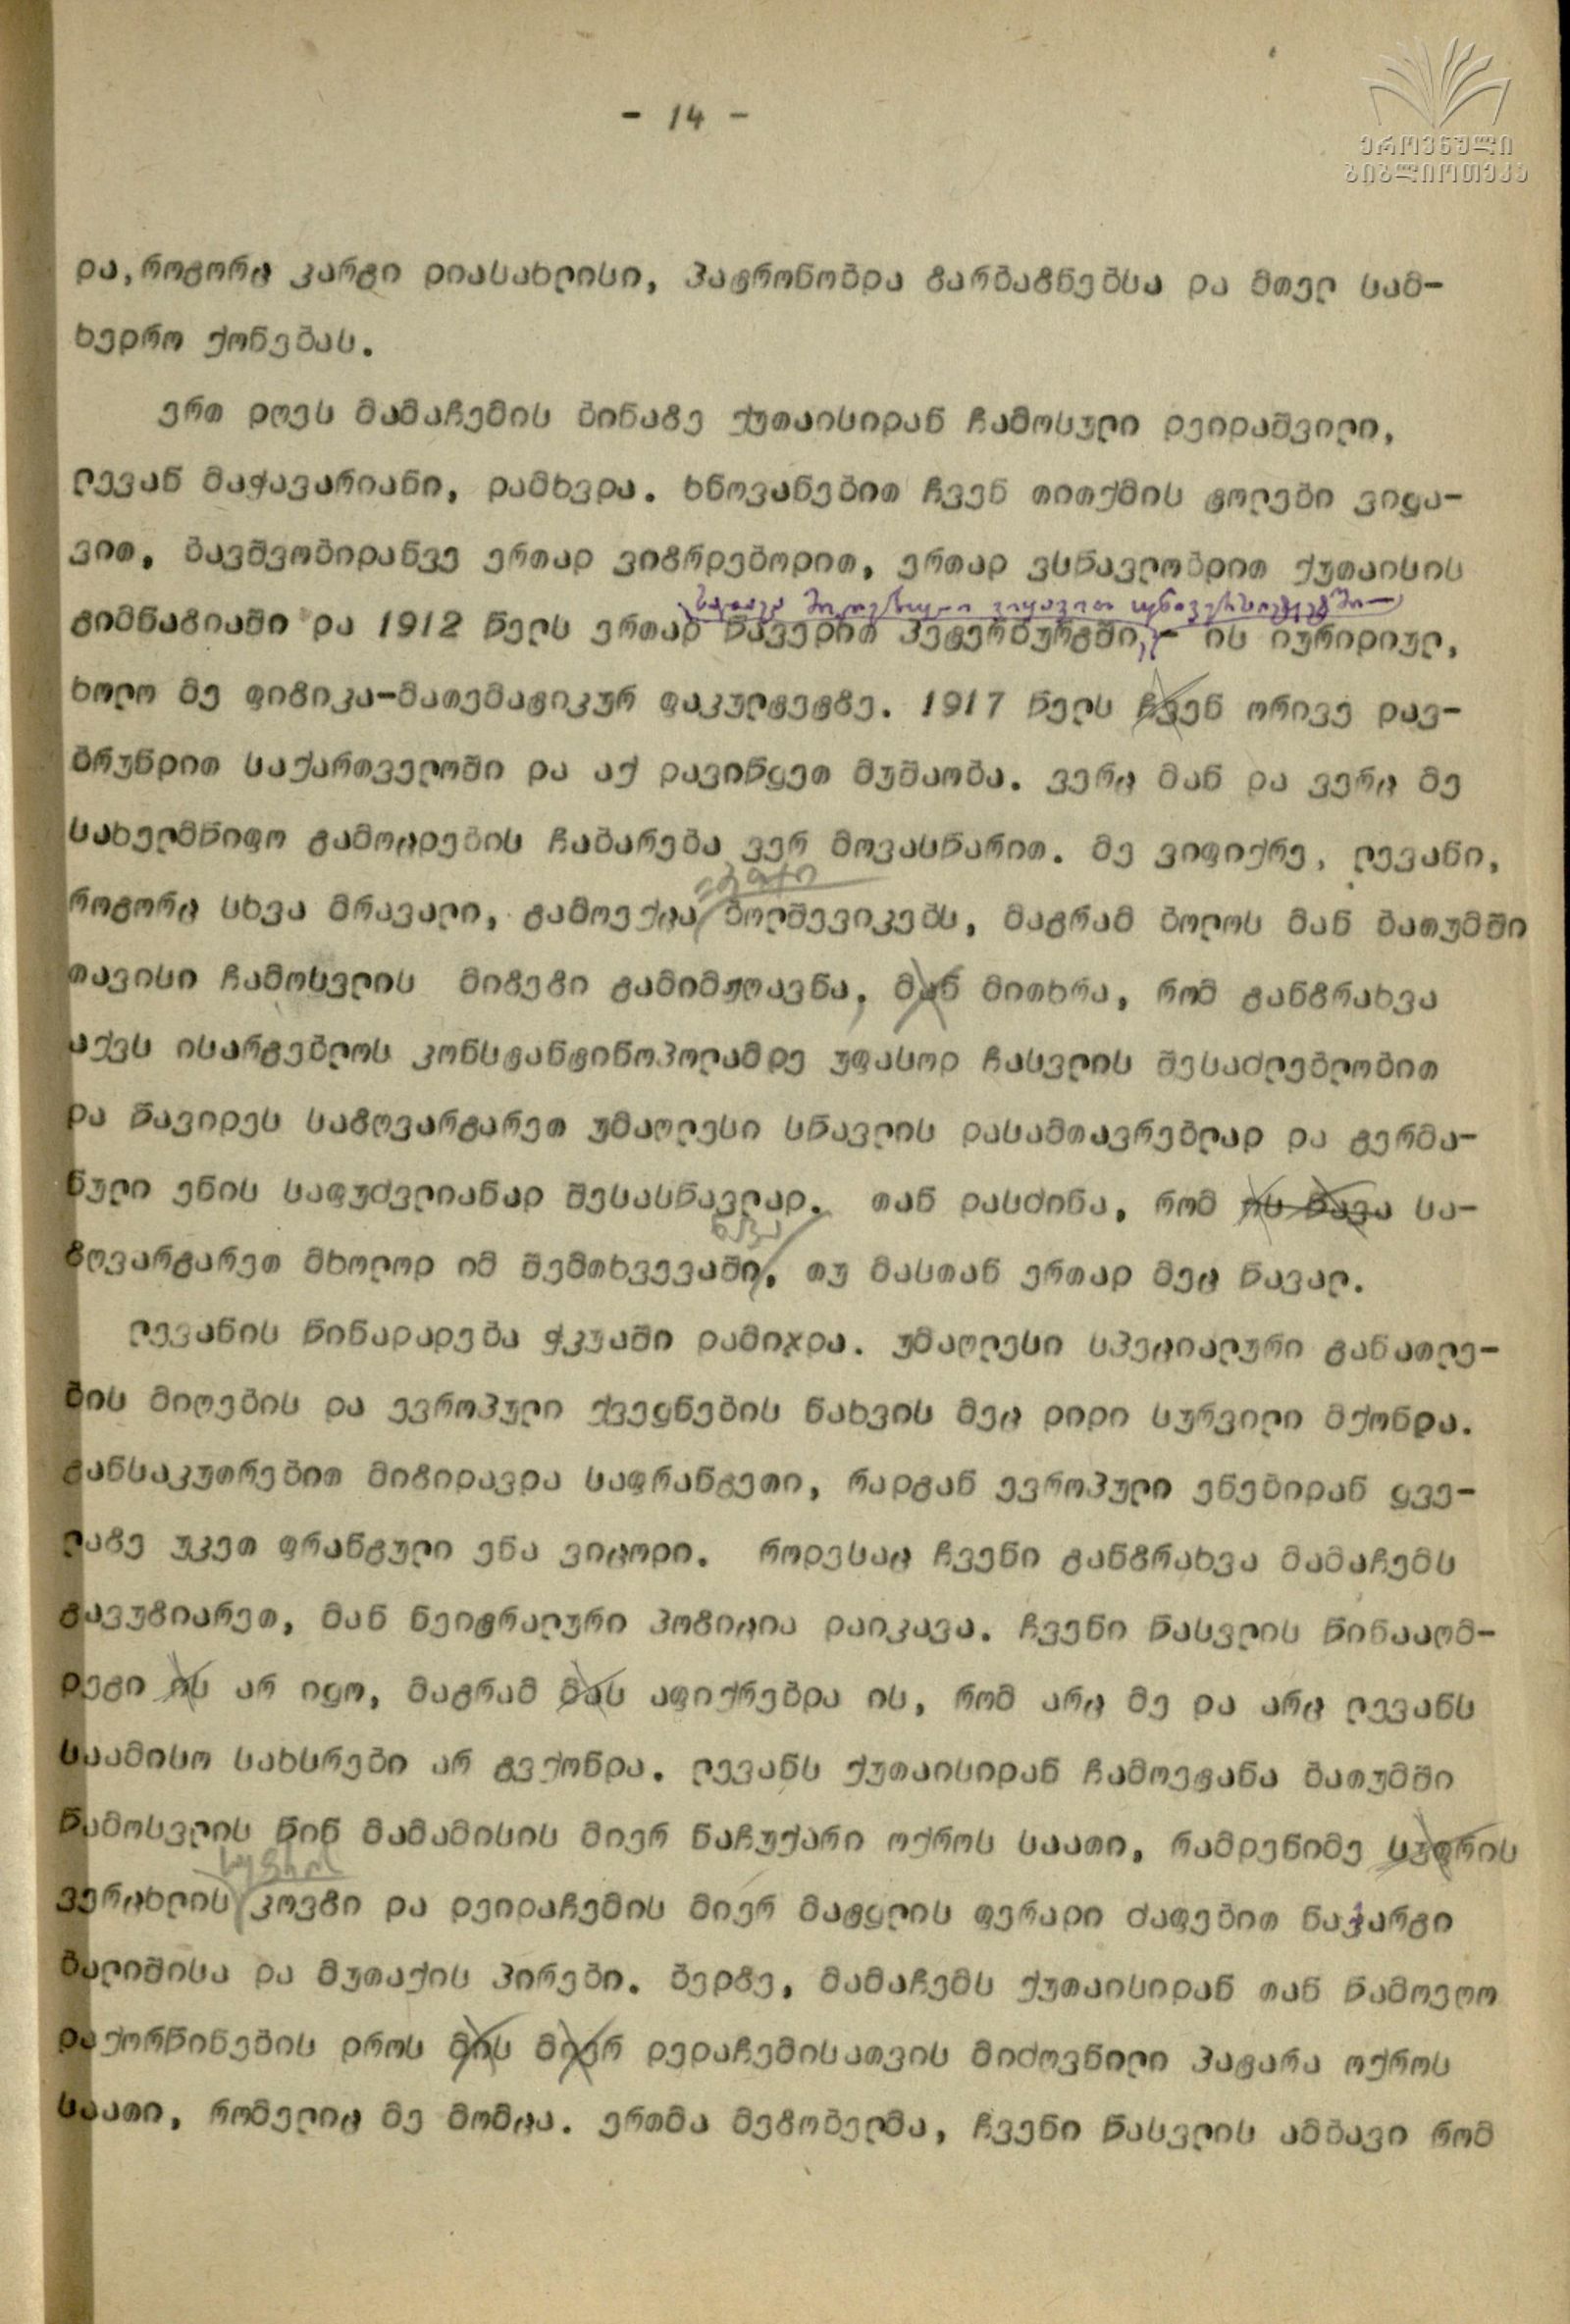 - 14 -
ეროვნული
ბიბლიოთეკა
და, როგორც კარგი დიასახლისი, პატრონობდა ბარგაბნებსა და მთელ სამ-
ხედრო ქონებას.
ერთ დღეს მამაჩემის ბინაზე ქუთაისიდან ჩამოსული დეიდაშვილი,
ლევან მაჭავარიანი, დამხვდა. ხნოვანებით ჩვენ თითქმის ტოლები ვიყა-
ვით, ბავშვობიდანვე ერთად ვიზრდებოდით, ერთად ვსწავლობდით ქუთაისის
სადაც მიღებული ვიყავით უნივერსიტეტში
გიმნაზიაში და 1912 წელს ერთად წავედით პეტერბურგში, - ის იურიდიულ,
ხოლო მე ფიზიკა-მათემატიკურ ფაკულტეტზე. 1917 წელს ჩვენ ორივე დავ-
ბრუნდით საქართველოში და აქ დავიწყეთ მუშაობა. ვერც მან და ვერც მე
სახელმწიფო გამოცდების ჩაბარება ვერ მოვასწარით. მე ვიფიქრე, ლევანი,
როგორც სხვა მრავალი, გამოექცა ბოლშევიკებს, მაგრამ ბოლოს მან ბათუმში
თავისი ჩამოსვლის მიზეზი გამიმჟღავნა, მან მითხრა, რომ განზრახვა
აქვს ისარგებლოს კონსტანტინოპოლამდე უფასოდ ჩასვლის შესაძლებლობით
და წავიდეს საზღვარგარეთ უმაღლესი სწავლის დასამთავრებლად და გერმა-
ნული ენის საფუძვლიანად შესასწავლად. თან დასძინა, რომ ის წავა სა-
წავა
ზღვარგარეთ მხოლოდ იმ შემთხვევაში, თუ მასთან ერთად მეც წავალ.
ლევანის წინადადება ჭკუაში დამიჯდა. უმაღლესი სპეციალური განათლე-
ბის მიღების და ევროპული ქვეყნების ნახვის მეც დიდი სურვილი მქონდა.
განსაკუთრებით მიზიდავდა საფრანგეთი, რადგან ევროპული ენებიდან ყვე-
ლაზე უკეთ ფრანგული ენა ვიცოდი. როდესაც ჩვენი განზრახვა მამაჩემს
გავუზიარეთ, მან ნეიტრალური პოზიცია დაიკავა. ჩვენი წასვლის წინააღმ-
დეგი ის არ იყო, მაგრამ მას აფიქრებდა ის, რომ არც მე და არც ლევანს
საამისო სახსრები არ გვქონდა. ლევანს ქუთაისიდან ჩამოეტანა ბათუმში
წამოსვლის წინ მამამისის მიერ ნაჩუქარი ოქროს საათი, რამდენიმე სუფრის
სუფრის
ვერცხლის კოვზი და დეიდაჩემის მიერ მატყლის ფერადი ძაფებით ნაქარგი
ბალიშისა და მუთაქის პირები. ბედზე, მამაჩემს ქუთაისიდან თან წამოეღო
დაქორწინების დროს მის მიერ დედაჩემისათვის მიძღვნილი პატარა ოქროს
საათი, რომელიც მე მომცა. ერთმა მეზობელმა, ჩვენი წასვლის ამბავი რომ